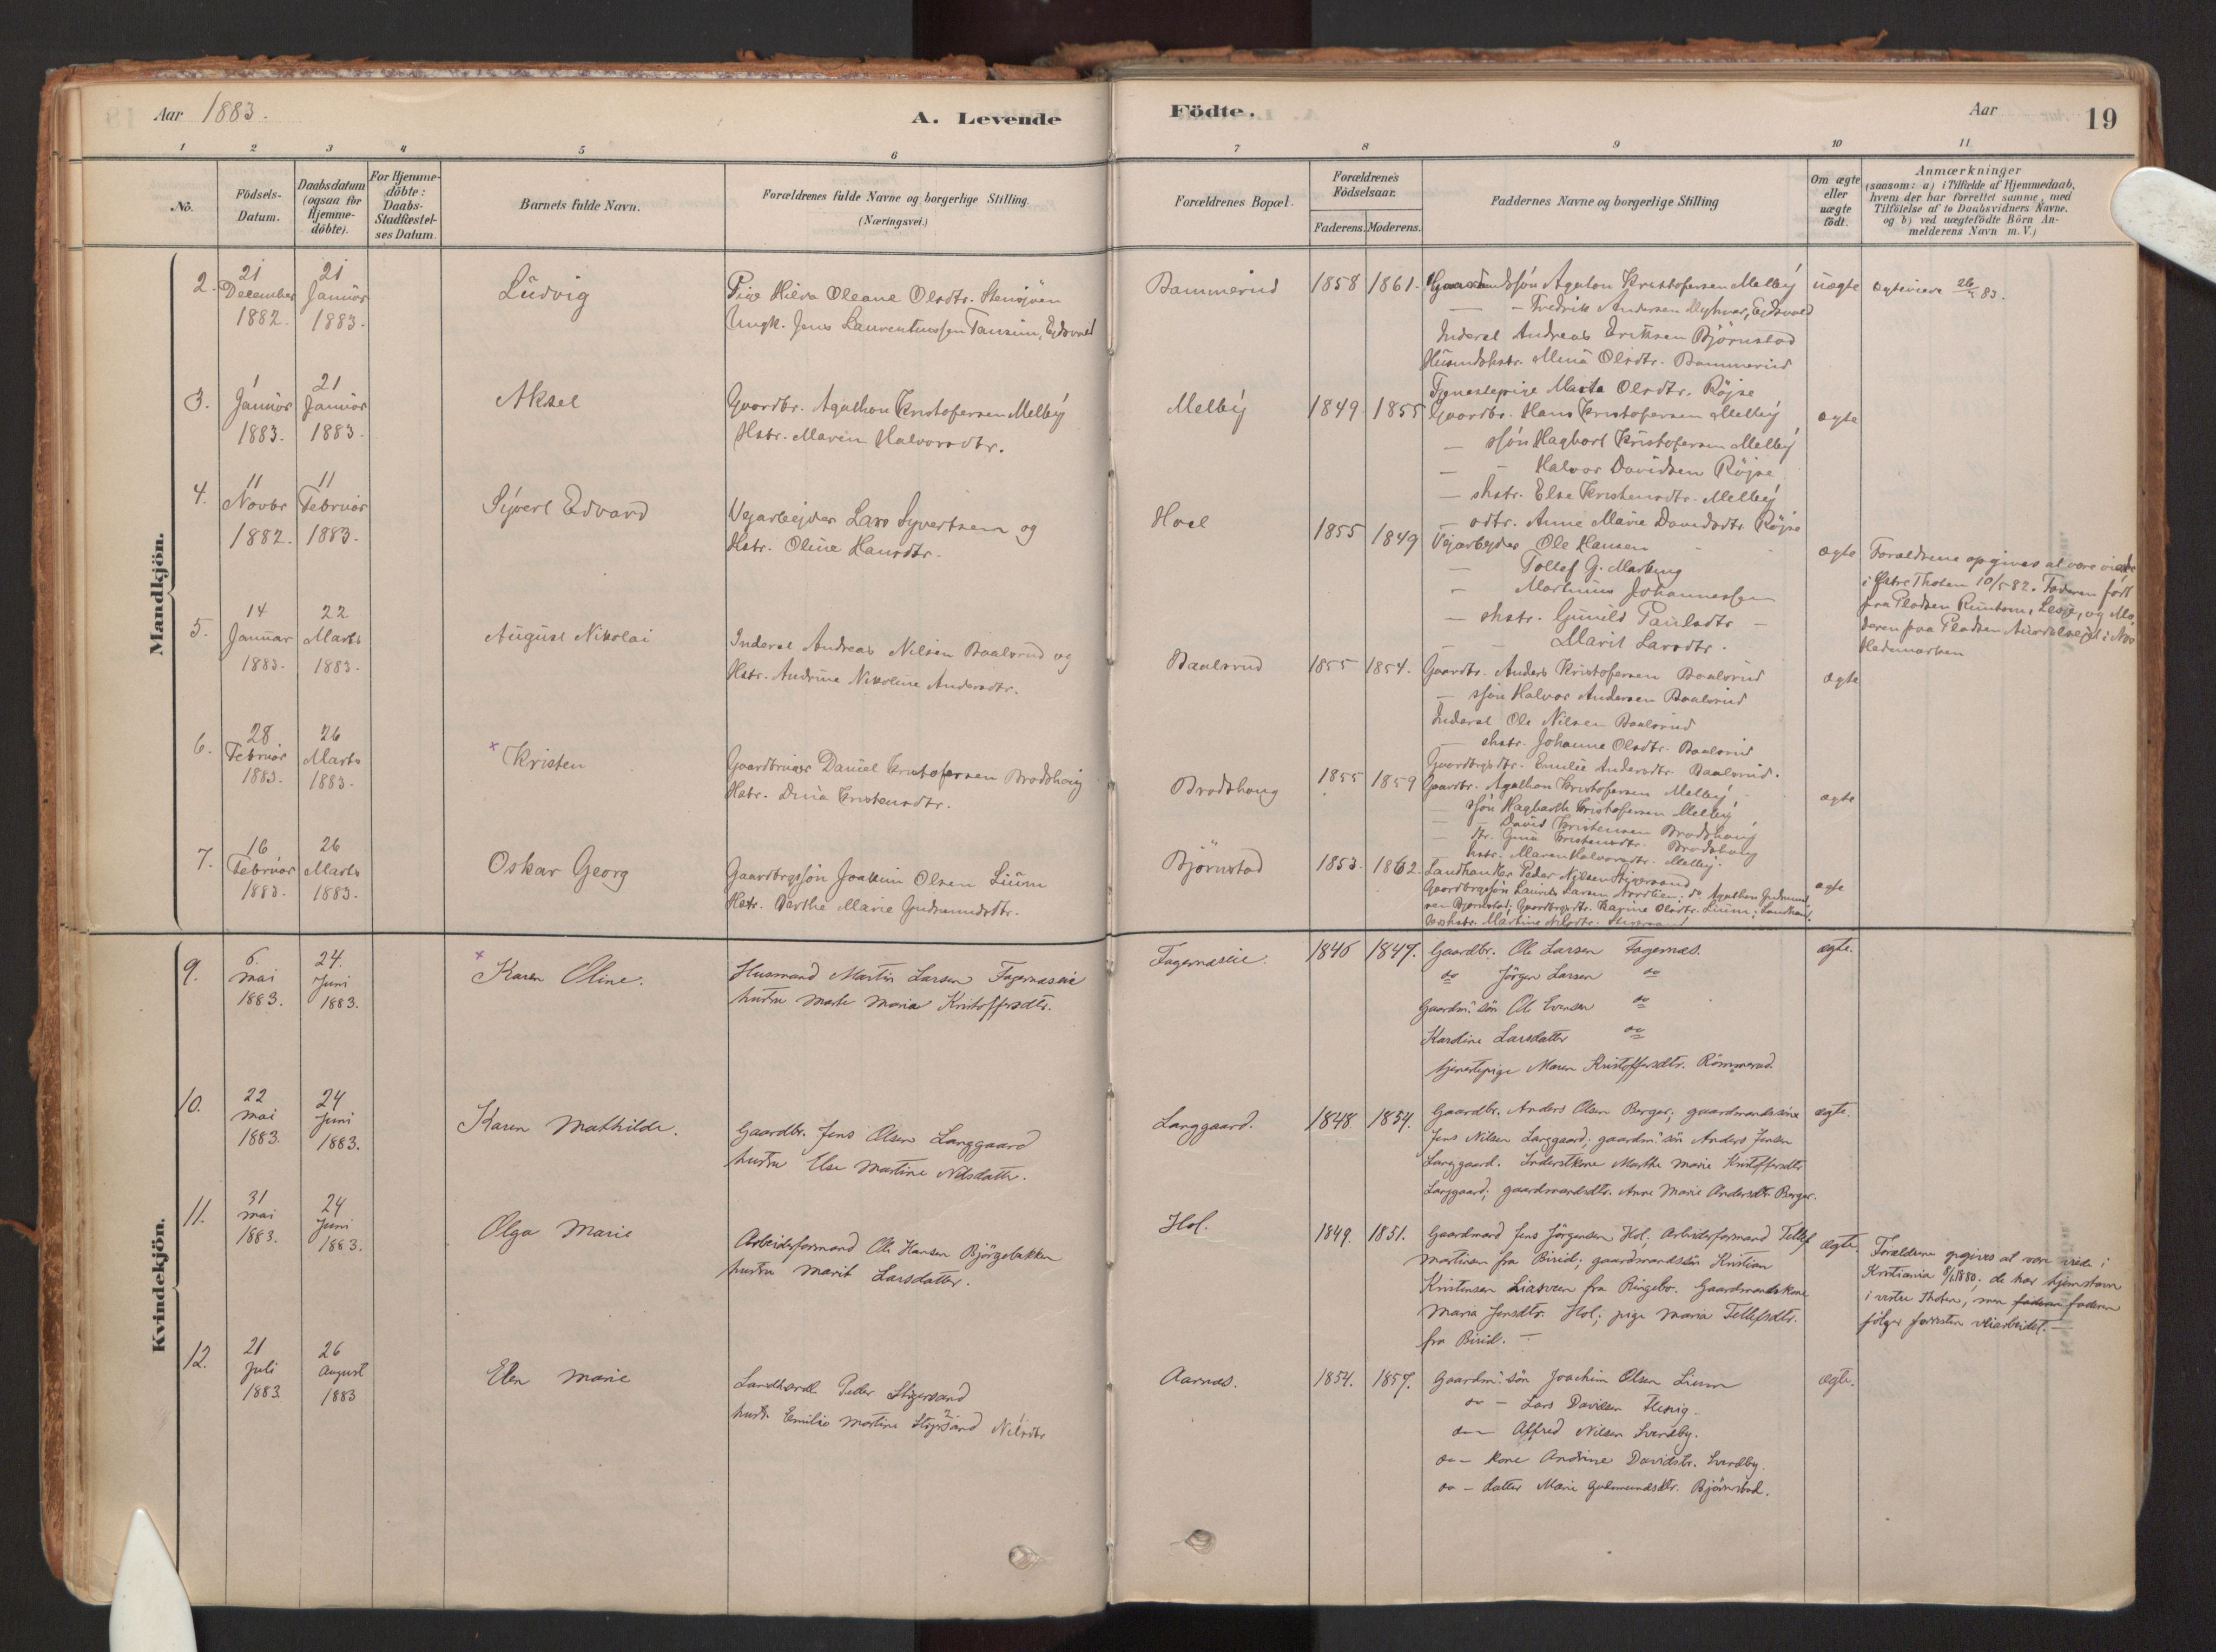 Aar 1883.
A. Levende
Födte.
Aar
19
1 2 3 4 5 6 7 8 9 10 11
No.
Födsels-
Datum.
Daabsdatum
(ogsaa for
Hjemme-
döbte).
For Hjemme-
döbte:
Daabs-
Stadfæstel-
ses Datum.
Barnets fulde Navn.
Forældrenes fulde Navne og borgerlige Stilling
(Næringsvei.)
Forældrenes Bopæl.
Forældrenes
Födselsaar.
Faderens. Moderens.
Faddernes Navne og borgerlige Stilling
Om ægte
eller
uægte
födt.
Anmærkninger
(saasom: a) i Tilfælde af Hjemmedaab,
hvem der har forrettet samme, med
Tilföielse af to Daabsvidners Navne.
og b) ved uægtefödte Börn An-
melderens Navn m. V.)
Mandkjön.
2.
21
December
1882.
21
Januar
1883.
Ludvig
Pige Oleane Olsdtr. Stensjöen
Ungk. Jens Laurentiussen Eidsvold
Bommerud
1858 1861.
Agaton Kristofersen Melby
— - Fredrik Andersen Eidsvold
Inderst Andreas Eriksen Björnstad
Olsdtr. Bommerud
Tjenestepige Marta Olsdtr. Röjse
uægte
26/5 83.
3.
1
Januar
1883.
21
Januar
1883.
Aksel
Gaardbr. Agathon Kristofersen Melby
Hstr. Maren Halvorsdtr.
Melby
1849 1855
Gaardbr. Hans Kristofersen Melby
— ssön Hagbart Kristofersen Melby
— - Halvor Davidsen Röjse
— shstr. Else Kristensdtr. Melby
— sdtr. Anne Marie Davidsdtr. Röjse
ægte
4.
11
Novbr
1882.
11
Februar
1883.
Syvert Edvard
Vejarbejder Lars Syvertsen og
Hstr. Oline Hansdtr.
Hoel
1855 1849
Vejarbejder Ole Hansen -
— Tollef G.
- Martinus Johannessen
— shstr. Gunild Paulsdtr -
— - Marit Larsdtr.
ægte
Forældrene opgives at være viede
i Østre Thoten 10/5 82. Faderen født
paa Pladsen Lesje, og Mo-
deren paa Pladsen i Nes
Hedemarken
5.
14
Januar
1883.
22
Marts
1883.
August Nikolai
Inderst Andreas Nilsen Baalsrud og
Hstr. Andrine Nikoline Andersdtr.
Baalsrud
1855 1854.
Gaardbr. Anders Kristofersen Baalsrud
— ssön Halvor Andersen Baalsrud
Inderst Ole Nilsen Baalsrud
— shstr. Johanne Olsdtr. Baalsrud
Gaardbrgsdtr. Emilie Andersdtr. Baalsrud.
ægte
6.
28
Februar
1883.
26
Marts
1883.
× Kristen
Gaardbruger Daniel Kristofersen Brodshaug
Hstr. Dina Kristensdtr.
Brodshaug
1855 1859
Gaardbr. Agathon Kristofersen Melby,
— ssön Hagbarth Kristofersen Melby
— - David Kristensen Brodshaug
— dtr. Gina Kristensdtr. Brodshaug
hstr. Maren Halvorsdtr. Melby.
ægte
7.
16
Februar
1883.
26
Marts
1883.
Oskar Georg
Gaardbrgssön Joakim Olsen Lium
Hstr. Berthe Marie Gudmundsdtr.
Björnstad
1853. 1862.
Landhandler Peder Nilsen Stigersand
Gaardbrgssön Laurits Larsen Nordlien; do Agathon Gudmund-
sen Bjørnstad; Gaardbrgsdtr. Karine Olsdtr. Lium; Landhand-
lershstr. Martine Nilsdtr.
ægte
Kvindekjön.
9.
6.
mai
1883.
24.
Juni
1883.
× Karen Oline.
Husmand Martin Larsen Fagernæseie
hustru Marte Maria Kristoffersdtr.
Fagernæseie.
1846 1847.
Gaardbr. Ole Larsen Fagernæs.
do Jörgen Larsen do
Gaardm. sön Ole Evensen do
Kardine Larsdatter do
tjenestepige Maren Kristoffersdtr. Römmerud.
ægte.
10.
22
mai
1883.
24
Juni
1883.
Karen Mathilde.
Gaardbr. Jens Olsen Langgaard
hustru Else Martine Nilsdatter.
Langgaard.
1848 1854.
Gaardbr. Anders Olsen Berger; gaardmandssön
Jens Nilsen Langgaard; gaardm. sön Anders Jensen
Langgaard. Inderstkone Marthe Marie Kristoffersdtr
Langgaard; gaardmandsdtr. Anne Marie Andersdtr. Berger.
ægte.
11.
31
mai
1883.
24
Juni
1883.
Olga Marie
Arbeidsformand Ole Hansen Björgebakken
hustru Marit Larsdatter.
Hol.
1849. 1851.
Gaardmand Jens Jörgensen Hol; Arbeidsformand Tollef
Martinsen fra Birid; gaardmandssön Kristian
Kristensen Liasveen fra Ringebo. Gaardmandskone
Maria Jensdtr. Hol; pige Maria Tollefsdtr.
fra Birid. —
ægte.
Forældrene opgives at være viede i
Kristiania 8/1 1880; de har hjemstavn
i vestre Thoten, men faderen faderen
følger veiarbeidet. —
12.
21
Juli
1883.
26
August
1883
Elen Marie
Landhandl. Peder Stigersand
hustr. Emilie Martine Stigersand Nilsdtr
Aarnæs.
1854. 1857.
Gaardm. sön Joachim Olsen Lium
do - Lars Davidsen
do - Alfred Nilsen Sverdby.
do - kone Andrine Davidsdtr. Sverdby.
do - datter Marie Gudmundsdtr. Björnstad.
ægte.